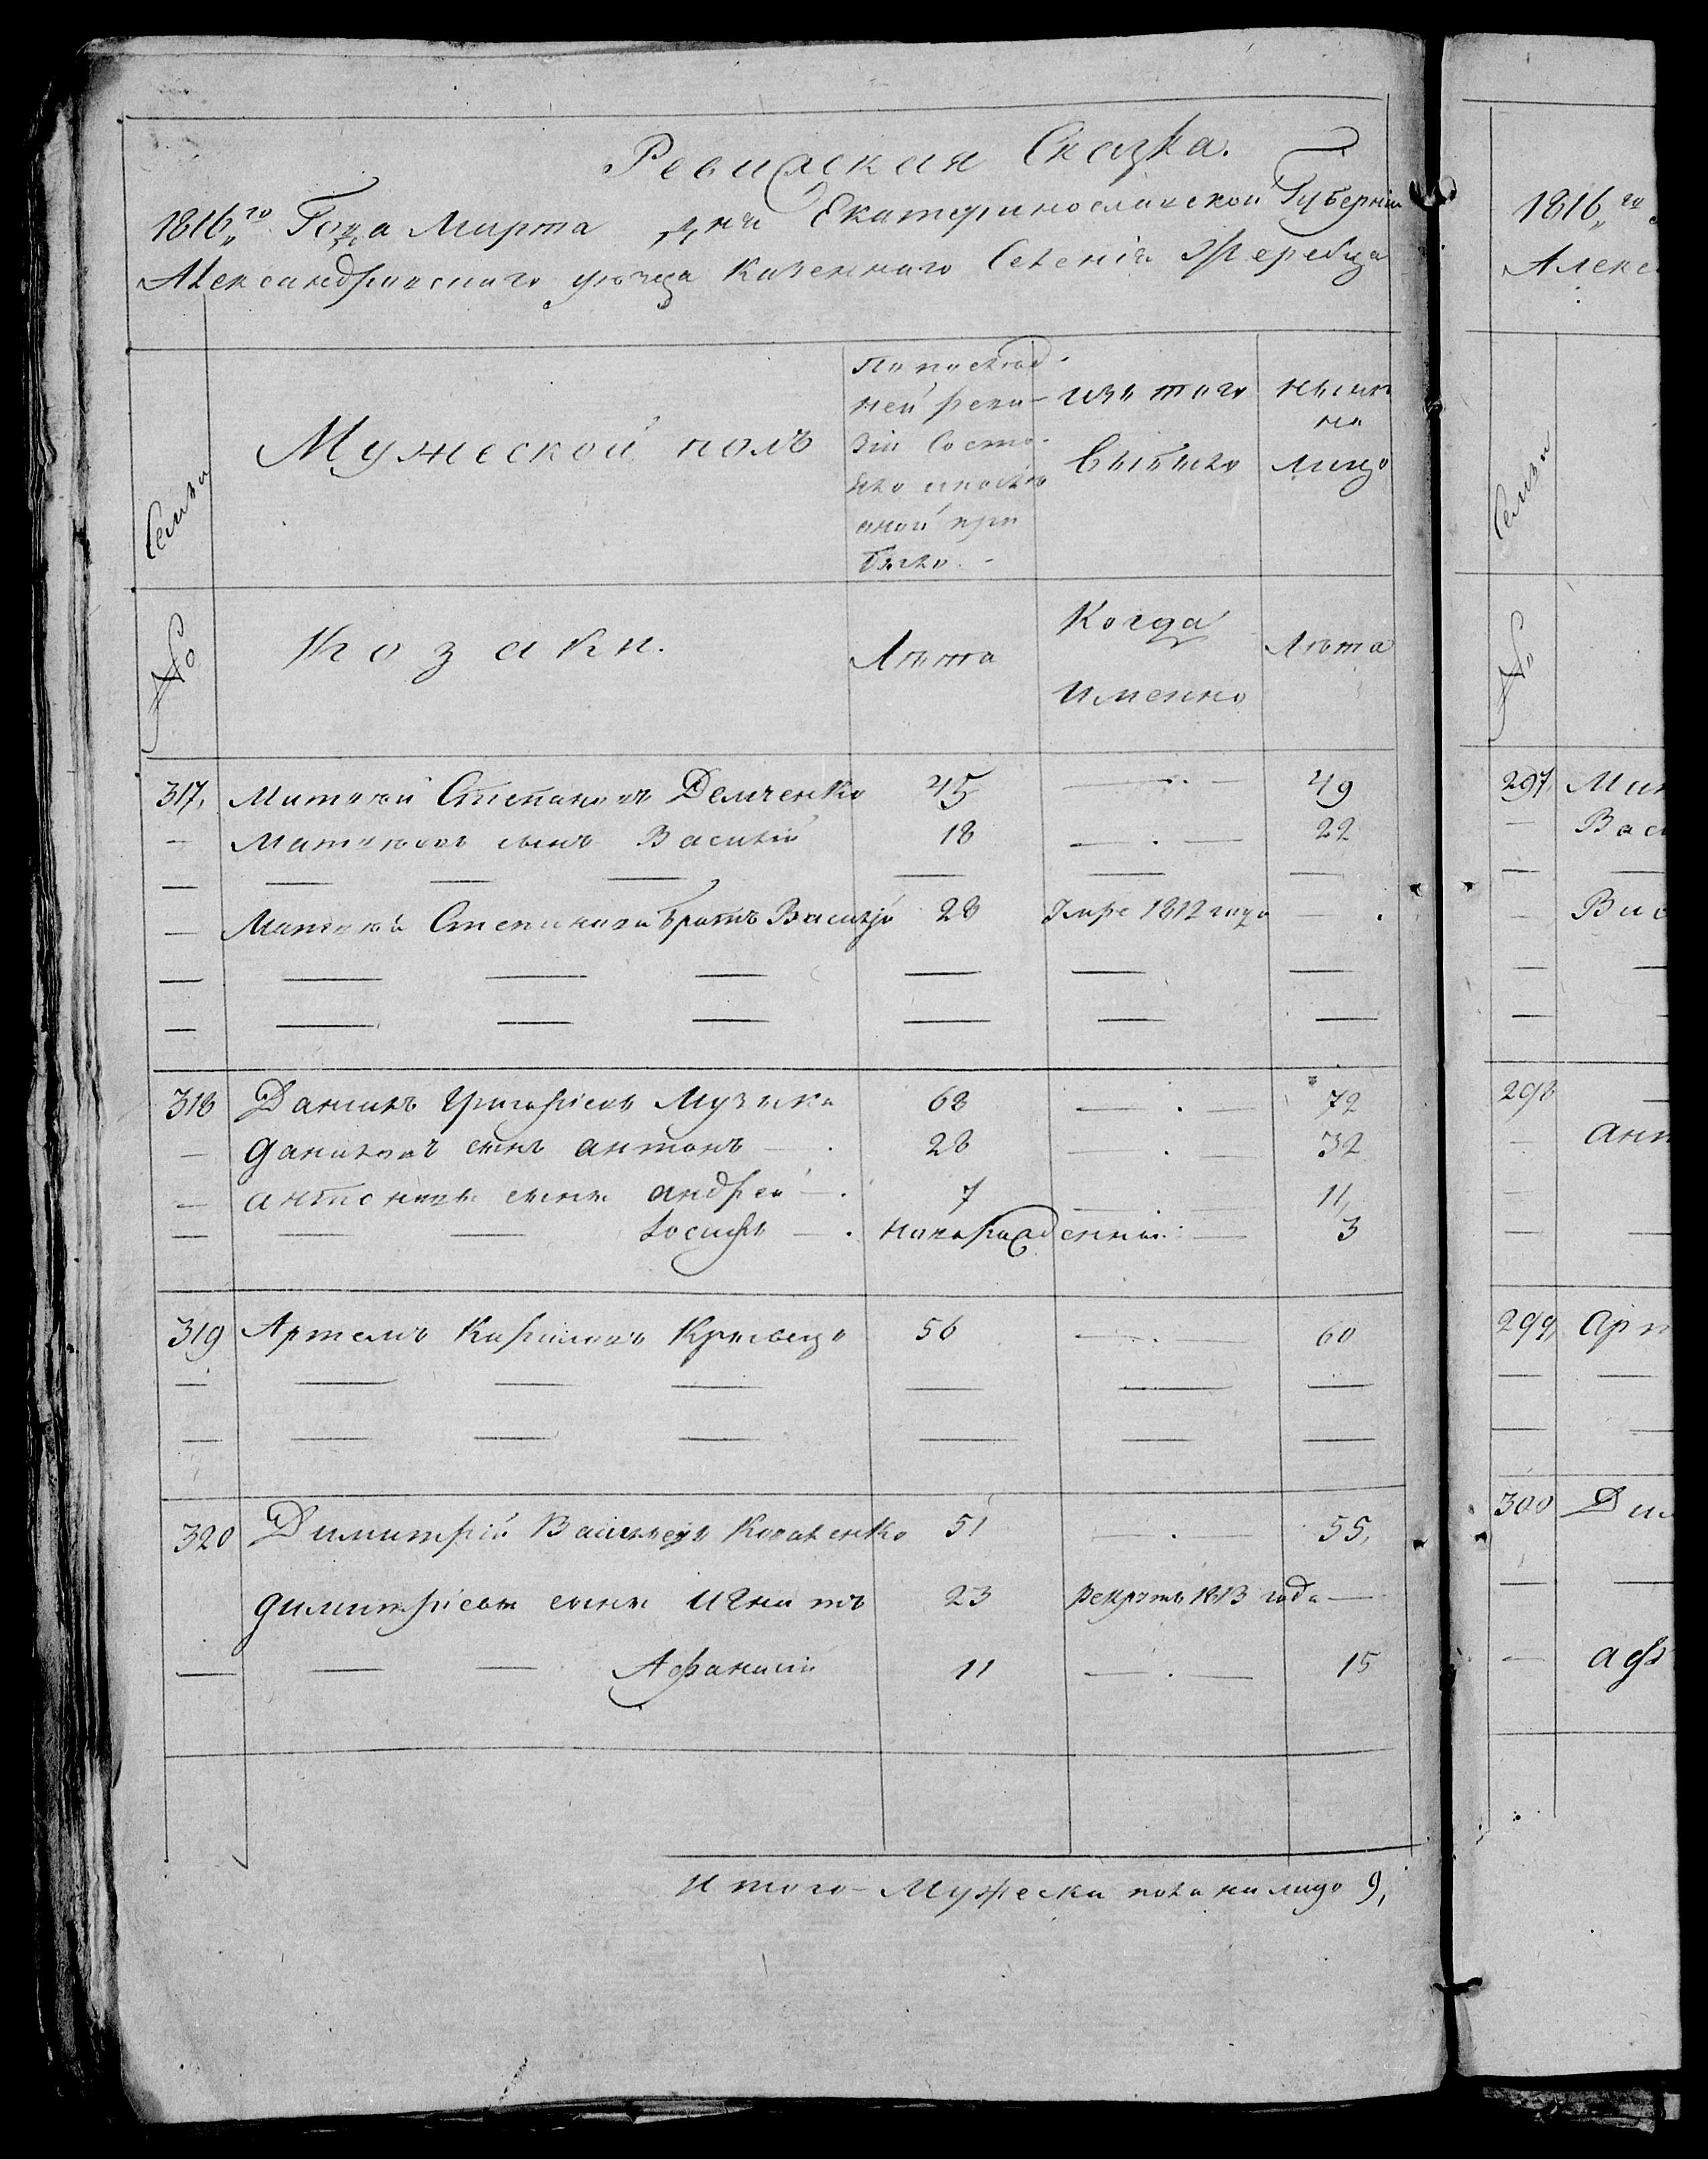 Ревижская Сказка.
1816го Года Марта дня Екатеринославской Губернии
Александровского уезда Казенного Селенія Жеребца
Семьи
Мужеской полъ
По послед
ней реви-
зіи Состо-
яло и после
оной при
было.-
изъ того
выбыло
ныне
на
лицо
№
Козаки.
Лета
Когда
именно
Лета
317, Матвей Степановъ Демченко 45 — . — 49
— Матвеевъ сынъ Василій 18 — . — 22
— Матвея Степанова братъ Василій 28 Умре 1812 года .
318 Данилъ Григорьевъ Музыка 68 — . — 72
— Даниловъ сынъ антонъ — . 28 — . — 32
— антоновы сыны андрей — . 7 — . — 11,
— — — Іосифъ — . новорожденный — 3
319 Артемъ Кривецъ 56 — . — 60
320 Димитрій Васильевъ Коваленко 51 — . — 55,
димитріевы сыны Игнатъ 23 рекрутъ 1813 года —
— — — Афанасій 11 — . — 15
Итого - Мужеска пола на лицо 9,
1816,,го
Алекс
Семьи
№
297,
Вас
298
ант
299,
Арт
300
Дим
афа